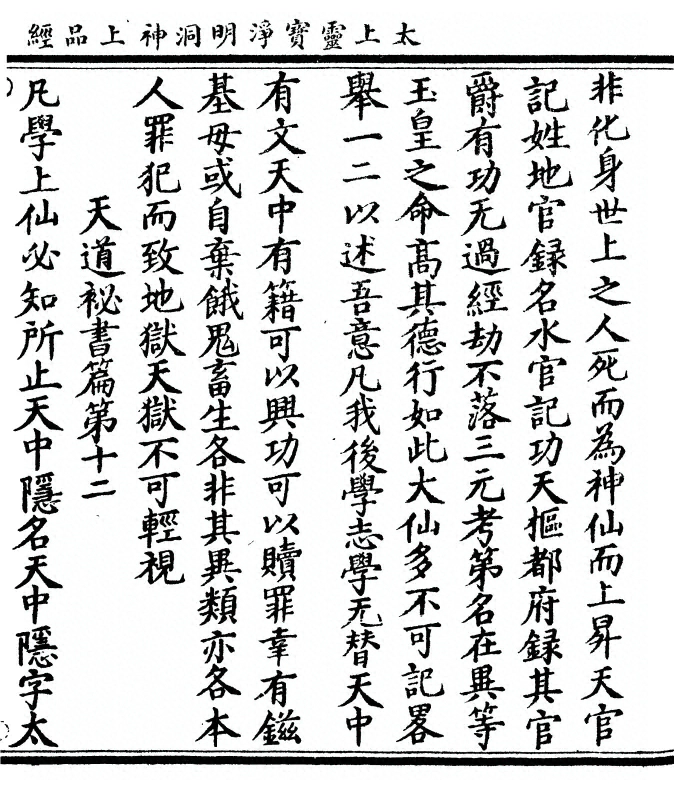 太上靈寶淨明洞神上品經
非化身世上之人死而為神仙而上昇天官
記姓地官録名水官記功天樞都府録其官
爵有功无過經劫不落三元考第名在異等
玉皇之命高其德行如此大仙多不可記畧
舉一二以述吾意凡我後學志學无替天中
有文天中有籍可以興功可以贖罪幸有鎡
基毋或自棄餓鬼畜生各非其異類亦各本
人罪犯而致地獄天獄不可輕視
天道祕書篇第十二
凡學上仙必知所止天中隱名天中隱字太